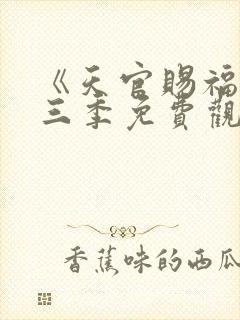 《天官賜福
三季免費觀
香蕉味的西瓜